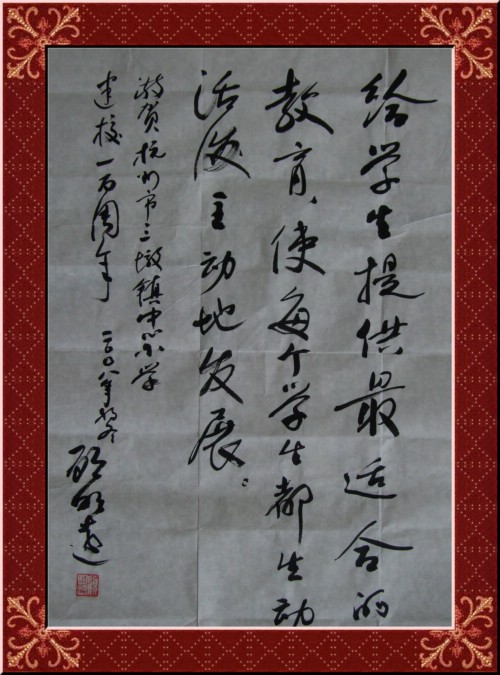 给学生提供最适合的
教育、使每个学生都生动
活泼主动地发展。
敬贺杭州市三墩镇中心小学
建校一百周年 二〇〇八年初冬
顾明远